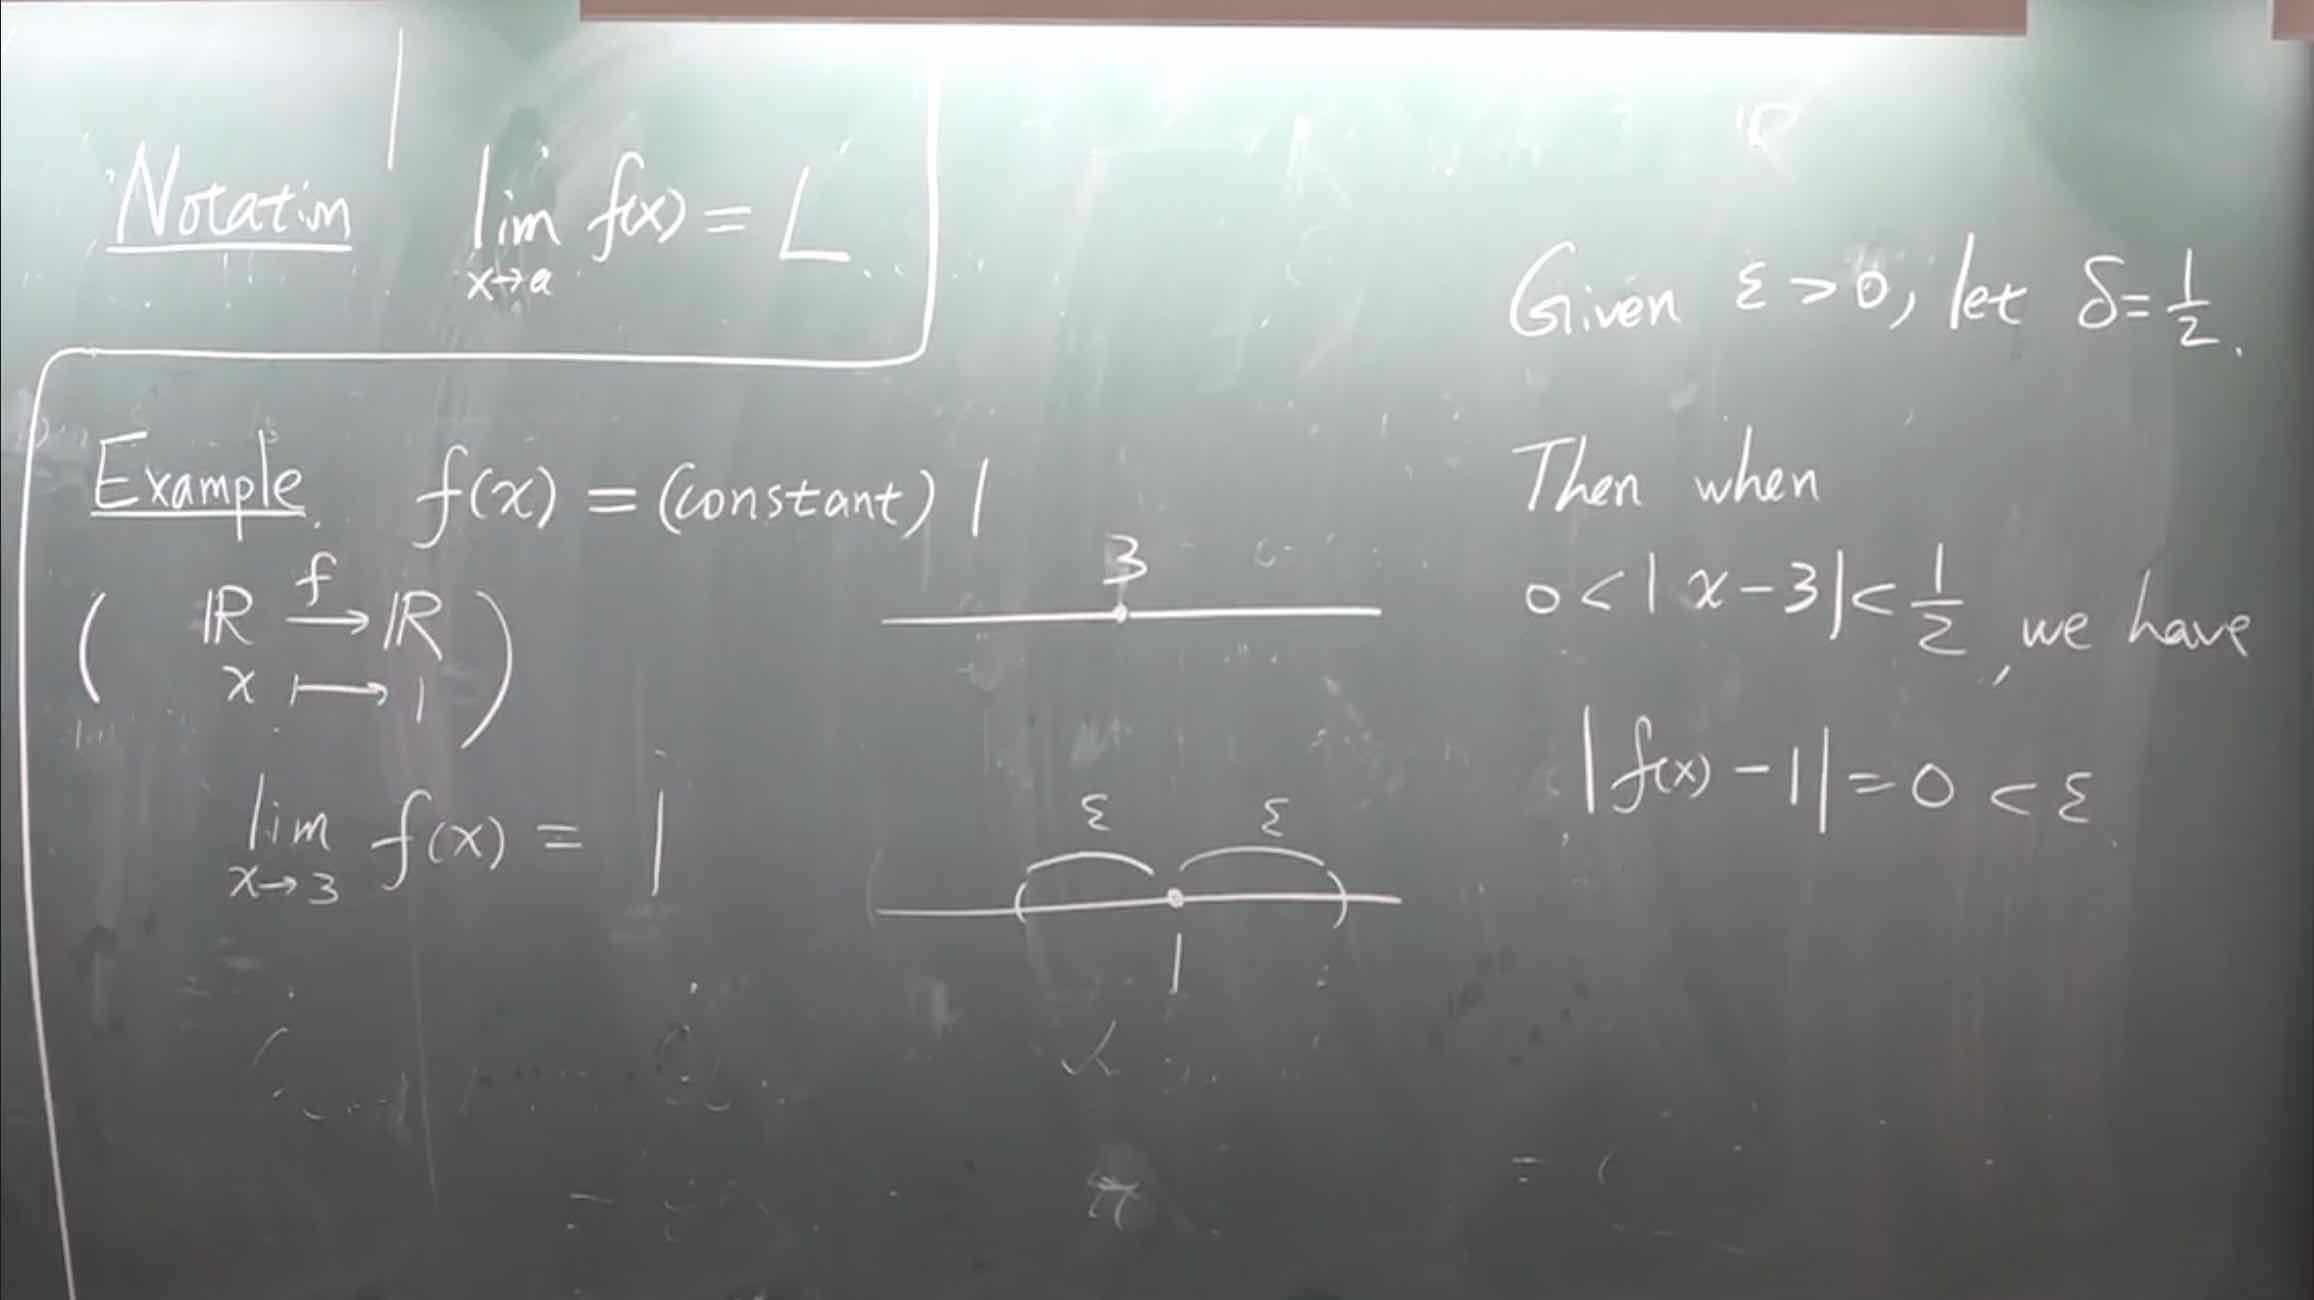 Notation lim f(x) = L
x→a
Example. f(x) = (constant) 1
( ℝ →f ℝ
x ↦ 1 )
lim f(x) = 1
x→3
3
ε ε
1
Given ε > 0, let δ = 1/2.
Then when
0 < | x - 3 | < 1/2, we have
| f(x) - 1 | = 0 < ε.